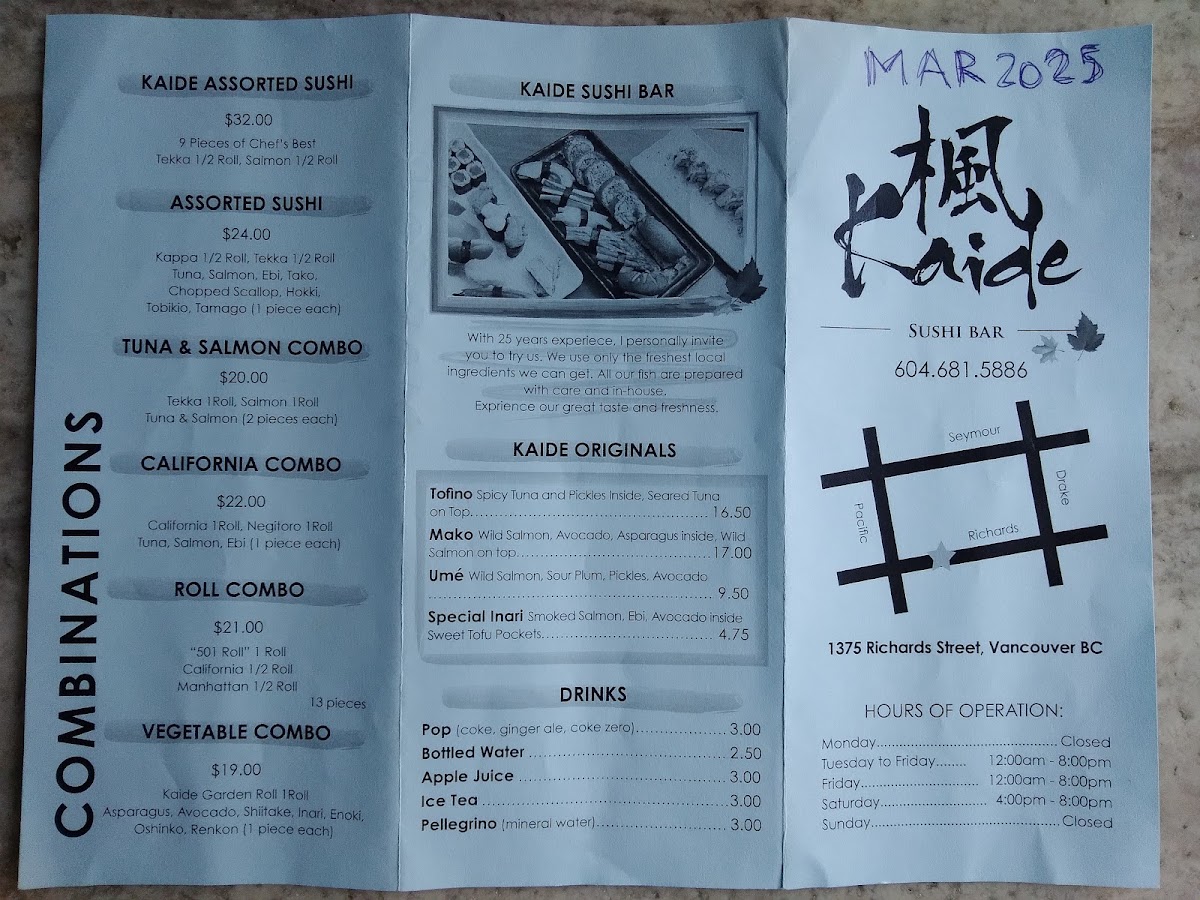 COMBINATIONS
KAIDE ASSORTED SUSHI
$32.00
9 Pieces of Chef's Best
Tekka 1/2 Roll, Salmon 1/2 Roll
ASSORTED SUSHI
$24.00
Kappa 1/2 Roll, Tekka 1/2 Roll
Tuna, Salmon, Ebi, Tako,
Chopped Scallop, Hokki,
Tobikio, Tamago (1 piece each)
TUNA & SALMON COMBO
$20.00
Tekka 1Roll, Salmon 1Roll
Tuna & Salmon (2 pieces each)
CALIFORNIA COMBO
$22.00
California 1Roll, Negitoro 1Roll
Tuna, Salmon, Ebi (1 piece each)
ROLL COMBO
$21.00
"501 Roll" 1 Roll
California 1/2 Roll
Manhattan 1/2 Roll
13 pieces
VEGETABLE COMBO
$19.00
Kaide Garden Roll 1Roll
Asparagus, Avocado, Shiitake, Inari, Enoki,
Oshinko, Renkon (1 piece each)
KAIDE SUSHI BAR
With 25 years experiece, I personally invite
you to try us. We use only the freshest local
ingredients we can get. All our fish are prepared
with care and in-house.
Exprience our great taste and freshness.
KAIDE ORIGINALS
Tofino Spicy Tuna and Pickles Inside, Seared Tuna
on Top........................................ 16.50
Mako Wild Salmon, Avocado, Asparagus inside, Wild
Salmon on top........................................17.00
Umé Wild Salmon, Sour Plum, Pickles, Avocado
........................................ 9.50
Special Inari Smoked Salmon, Ebi, Avocado inside
Sweet Tofu Pockets.................................. 4.75
DRINKS
Pop (coke, ginger ale, coke zero)................... 3.00
Bottled Water ........................................ 2.50
Apple Juice ........................................ 3.00
Ice Tea ........................................ 3.00
Pellegrino (mineral water)............................ 3.00
MAR 2025
楓
Kaide
SUSHI BAR
604.681.5886
Seymour
Drake
Pacific
Richards
1375 Richards Street, Vancouver BC
HOURS OF OPERATION:
Monday........................................ Closed
Tuesday to Friday........ 12:00am - 8:00pm
Friday............................. 12:00am - 8:00pm
Saturday.......................... 4:00pm - 8:00pm
Sunday........................................Closed